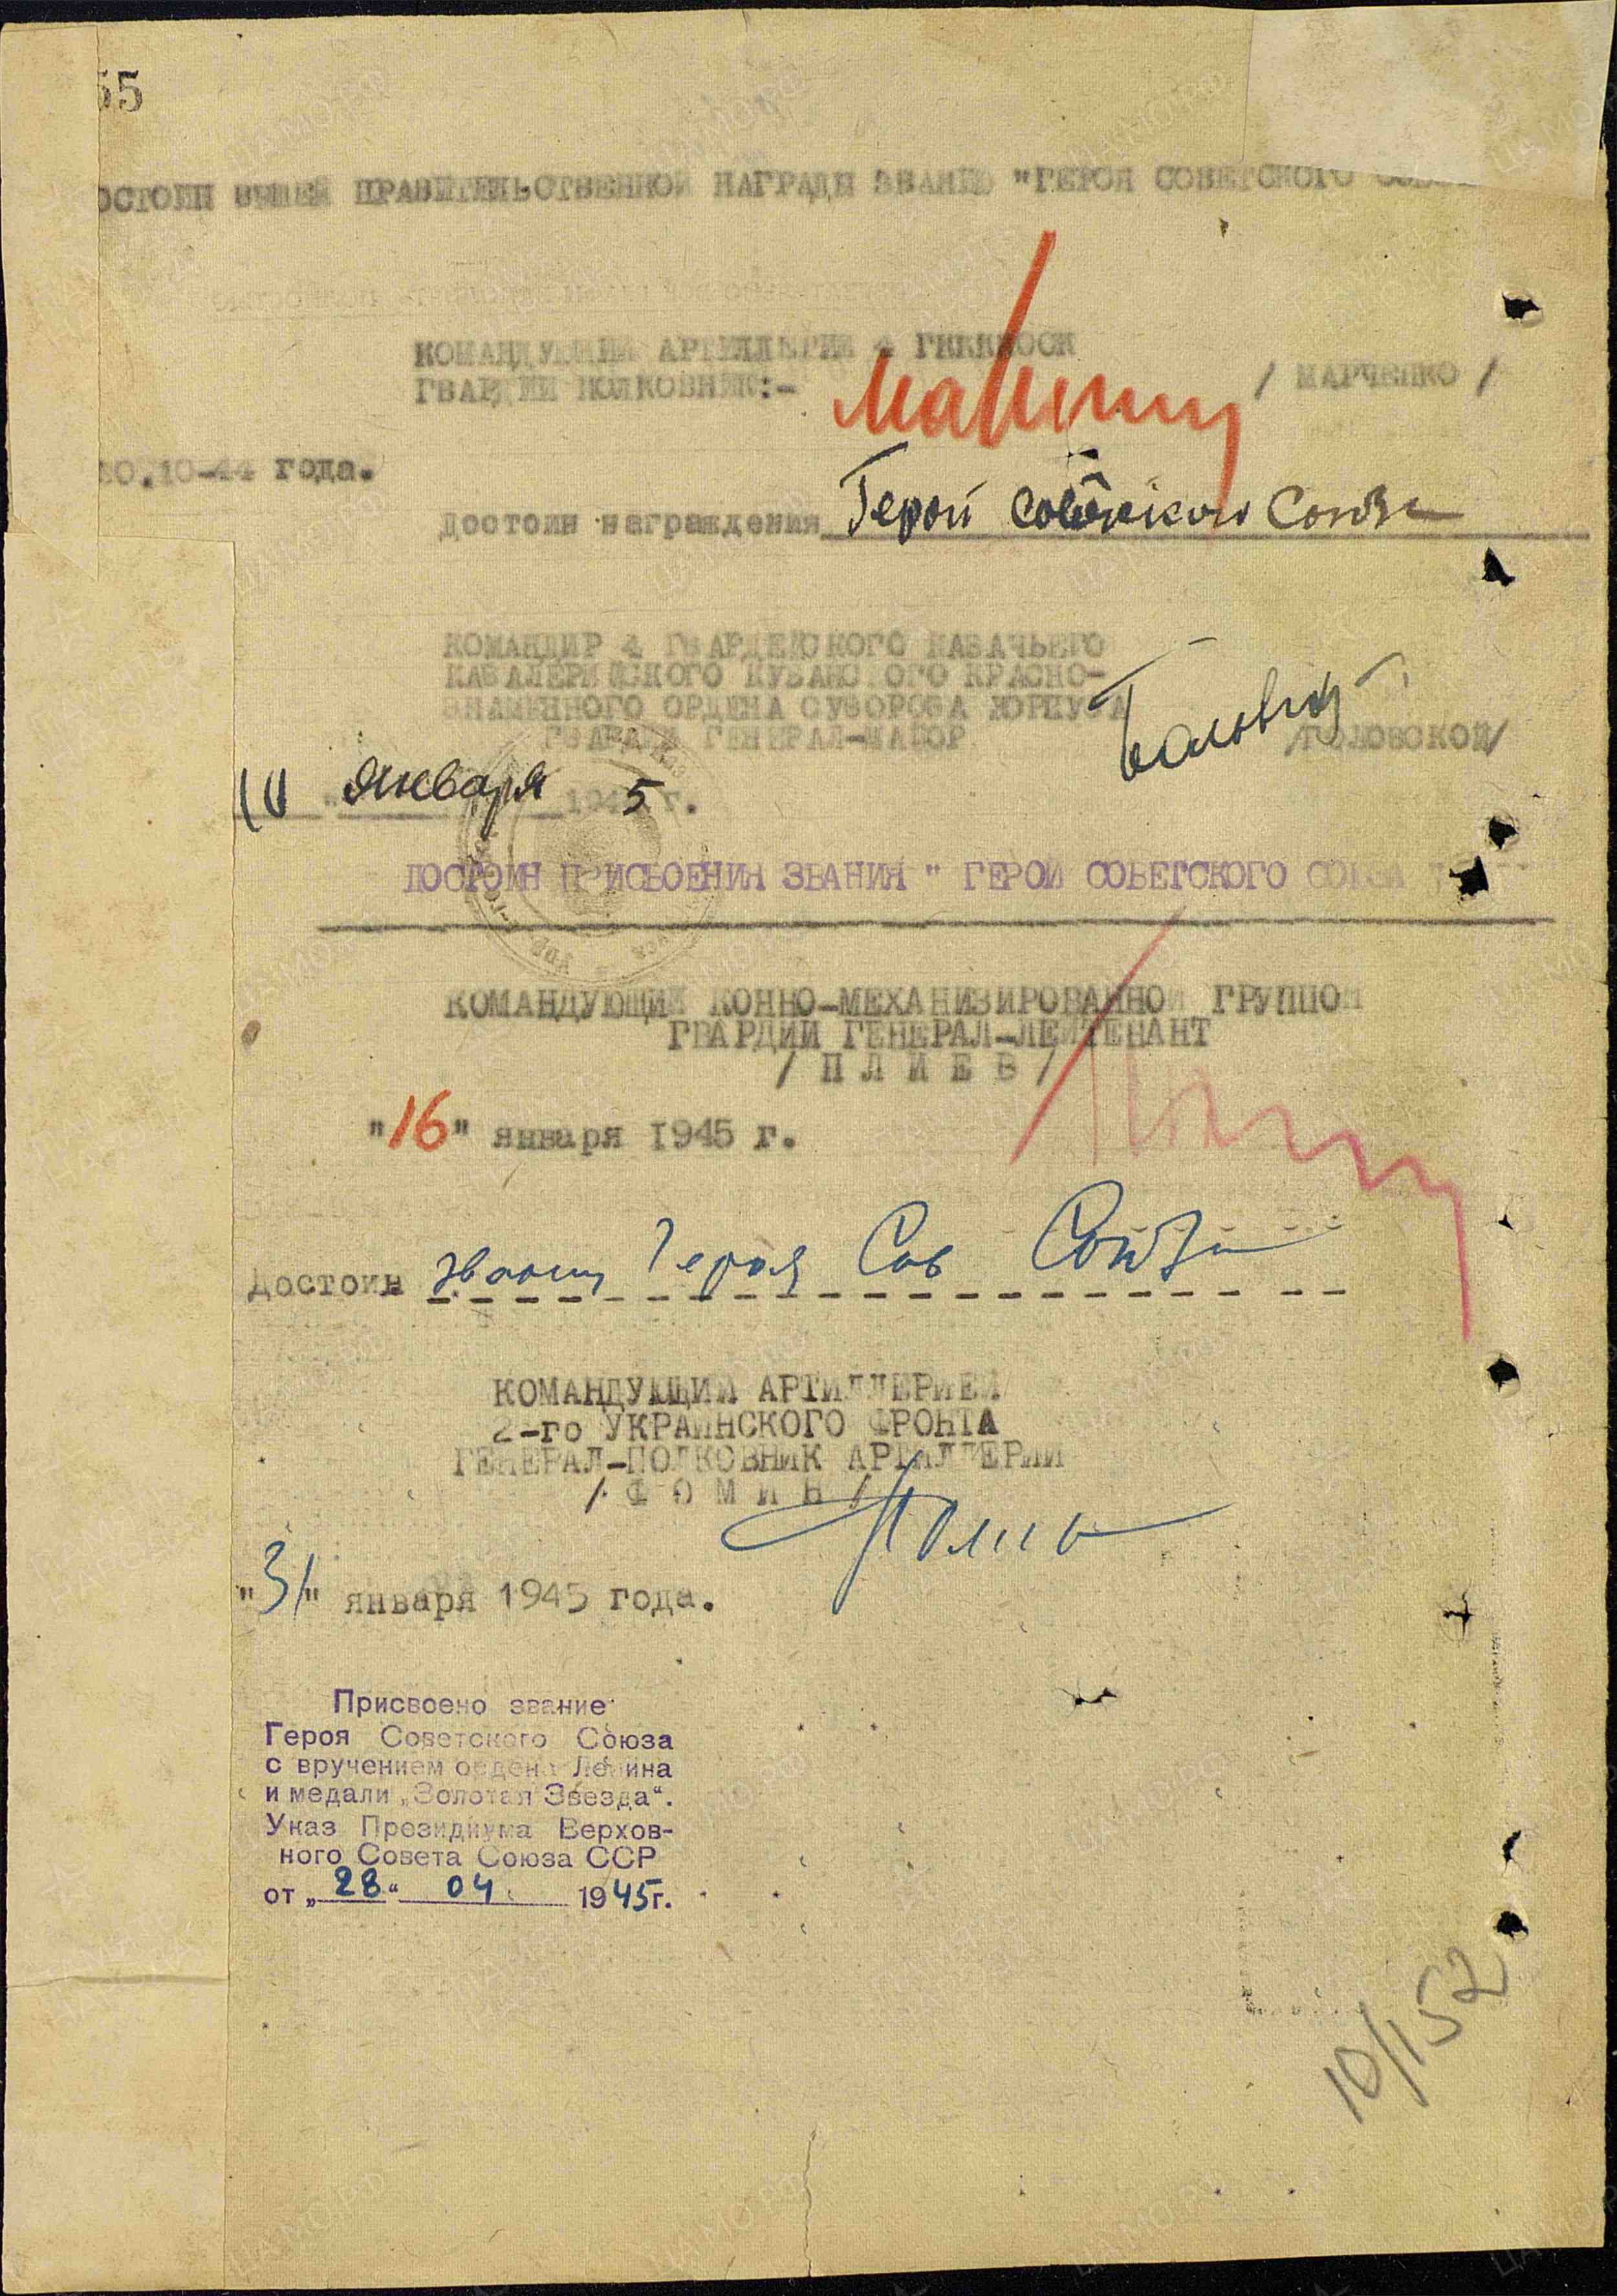 55
ОСТОИН ВЫШЕЙ ПРАВИТЕЛЬСТВЕННОЙ НАГРАДЫ ЗВАНИЮ "ГЕРОЯ СОВЕТСКОГО
КОМАНДУЮЩИЙ АРТИЛЛЕРИИ 4
ГВАРДИИ ПОЛКОВНИК:-
/ МАРЧЕНКО /
10-44 года.
Достоин награждения Герой Советского Союза
КОМАНДИР 4 ГВАРДЕЙСКОГО КАЗАЧЬЕГО
КАВАЛЕРИЙСКОГО КУБАНСКОГО КРАСНО-
ЗНАМЕННОГО ОРДЕНА СУВОРОВА КОРПУСА
ГВАРДИИ ГЕНЕРАЛ-МАЙОР
/ГОЛОВСКОЙ/
10 января 1945 г.
ДОСТОИН ПРИСВОЕНИЯ ЗВАНИЯ " ГЕРОЙ СОВЕТСКОГО СОЮЗА
КОМАНДУЮЩИЙ КОННО-МЕХАНИЗИРОВАННОЙ ГРУППОЙ
ГВАРДИИ ГЕНЕРАЛ-ЛЕЙТЕНАНТ
/ П Л И Е В /
"16" января 1945 г.
Достоин звания Героя Сов Союза
КОМАНДУЮЩИЙ АРТИЛЛЕРИЕЙ
2-го УКРАИНСКОГО ФРОНТА
ГЕНЕРАЛ-ПОЛКОВНИК АРТИЛЛЕРИИ
/ Ф О М И Н /
"31" января 1945 года.
Присвоено звание
Героя Советского Союза
с вручением ордена Ленина
и медали „Золотая Звезда“.
Указ Президиума Верхов-
ного Совета Союза ССР
от „28“ 04 1945г.
10/152